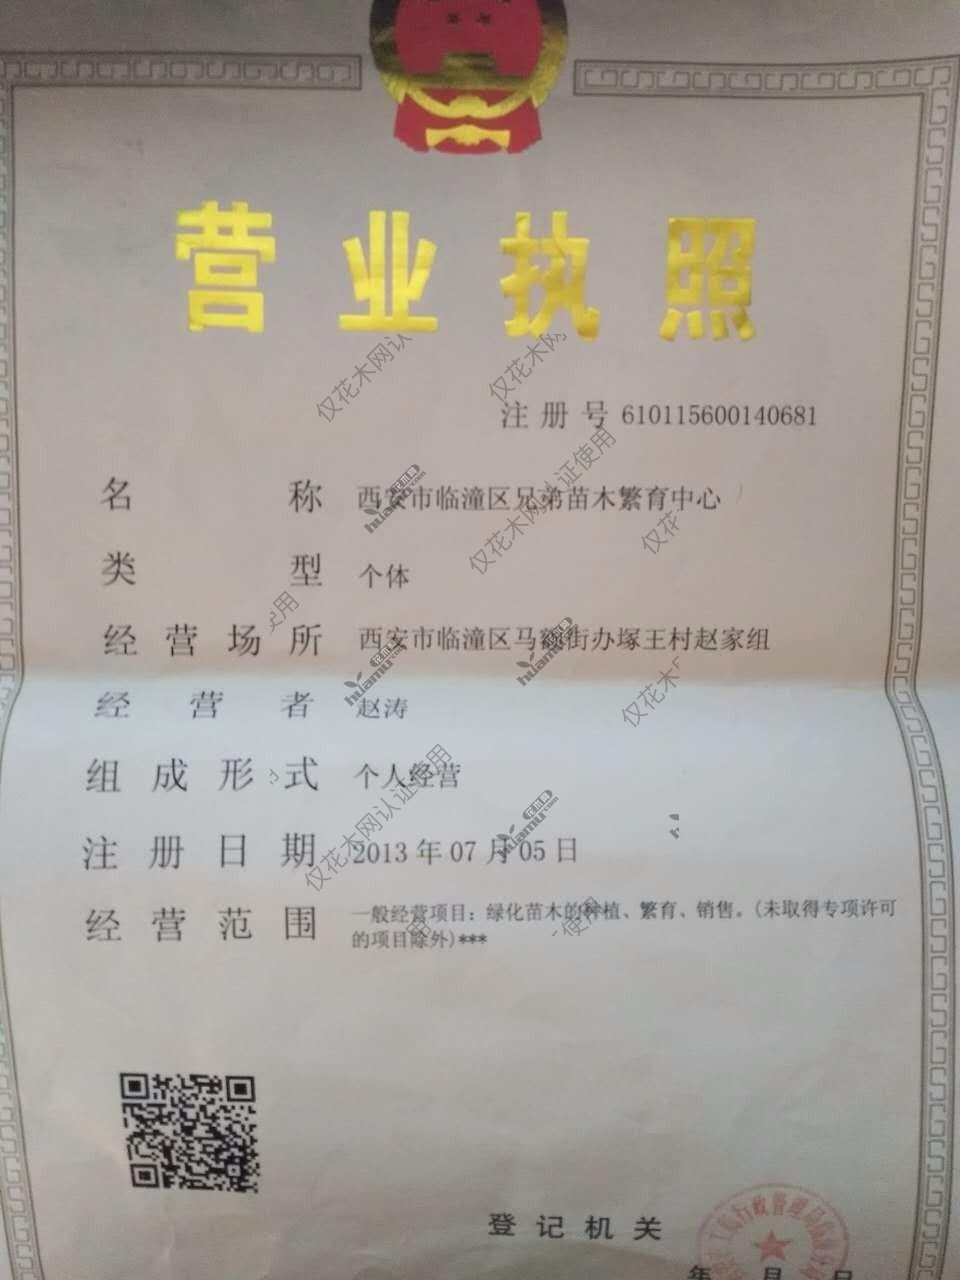 营业执照
注册号 610115600140681
名称 西安市临潼区兄弟苗木繁育中心
类型 个体
经营场所 西安市临潼区马额街办塚王村赵家组
经营者 赵涛
组成形式 个人经营
注册日期 2013年07月05日
经营范围 一般经营项目：绿化苗木的种植、繁育、销售。(未取得专项许可
的项目除外)***
登记机关
年 月 日
仅花木网认证使用
花木网
huamu.com